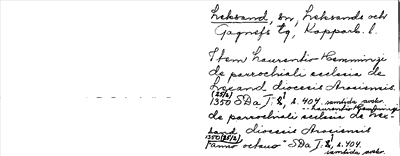 Leksand, sn, Leksands och
Gagnefs tg, Kopparb. l.
Item Laurentio Hemmingi
de parrochiali ecclesia de
Lexand diocesis Arosiensis
(25/2)
1350 SDa J: 8, s. 404. samtida avskr.
Laurentio Hemmingi
de parrochiali ecclesia de Lex-
sand, diocesis Arosiensis
1350 (25/2)
"anno octavo" SDa J: 8, s. 404.
samtida avskr.